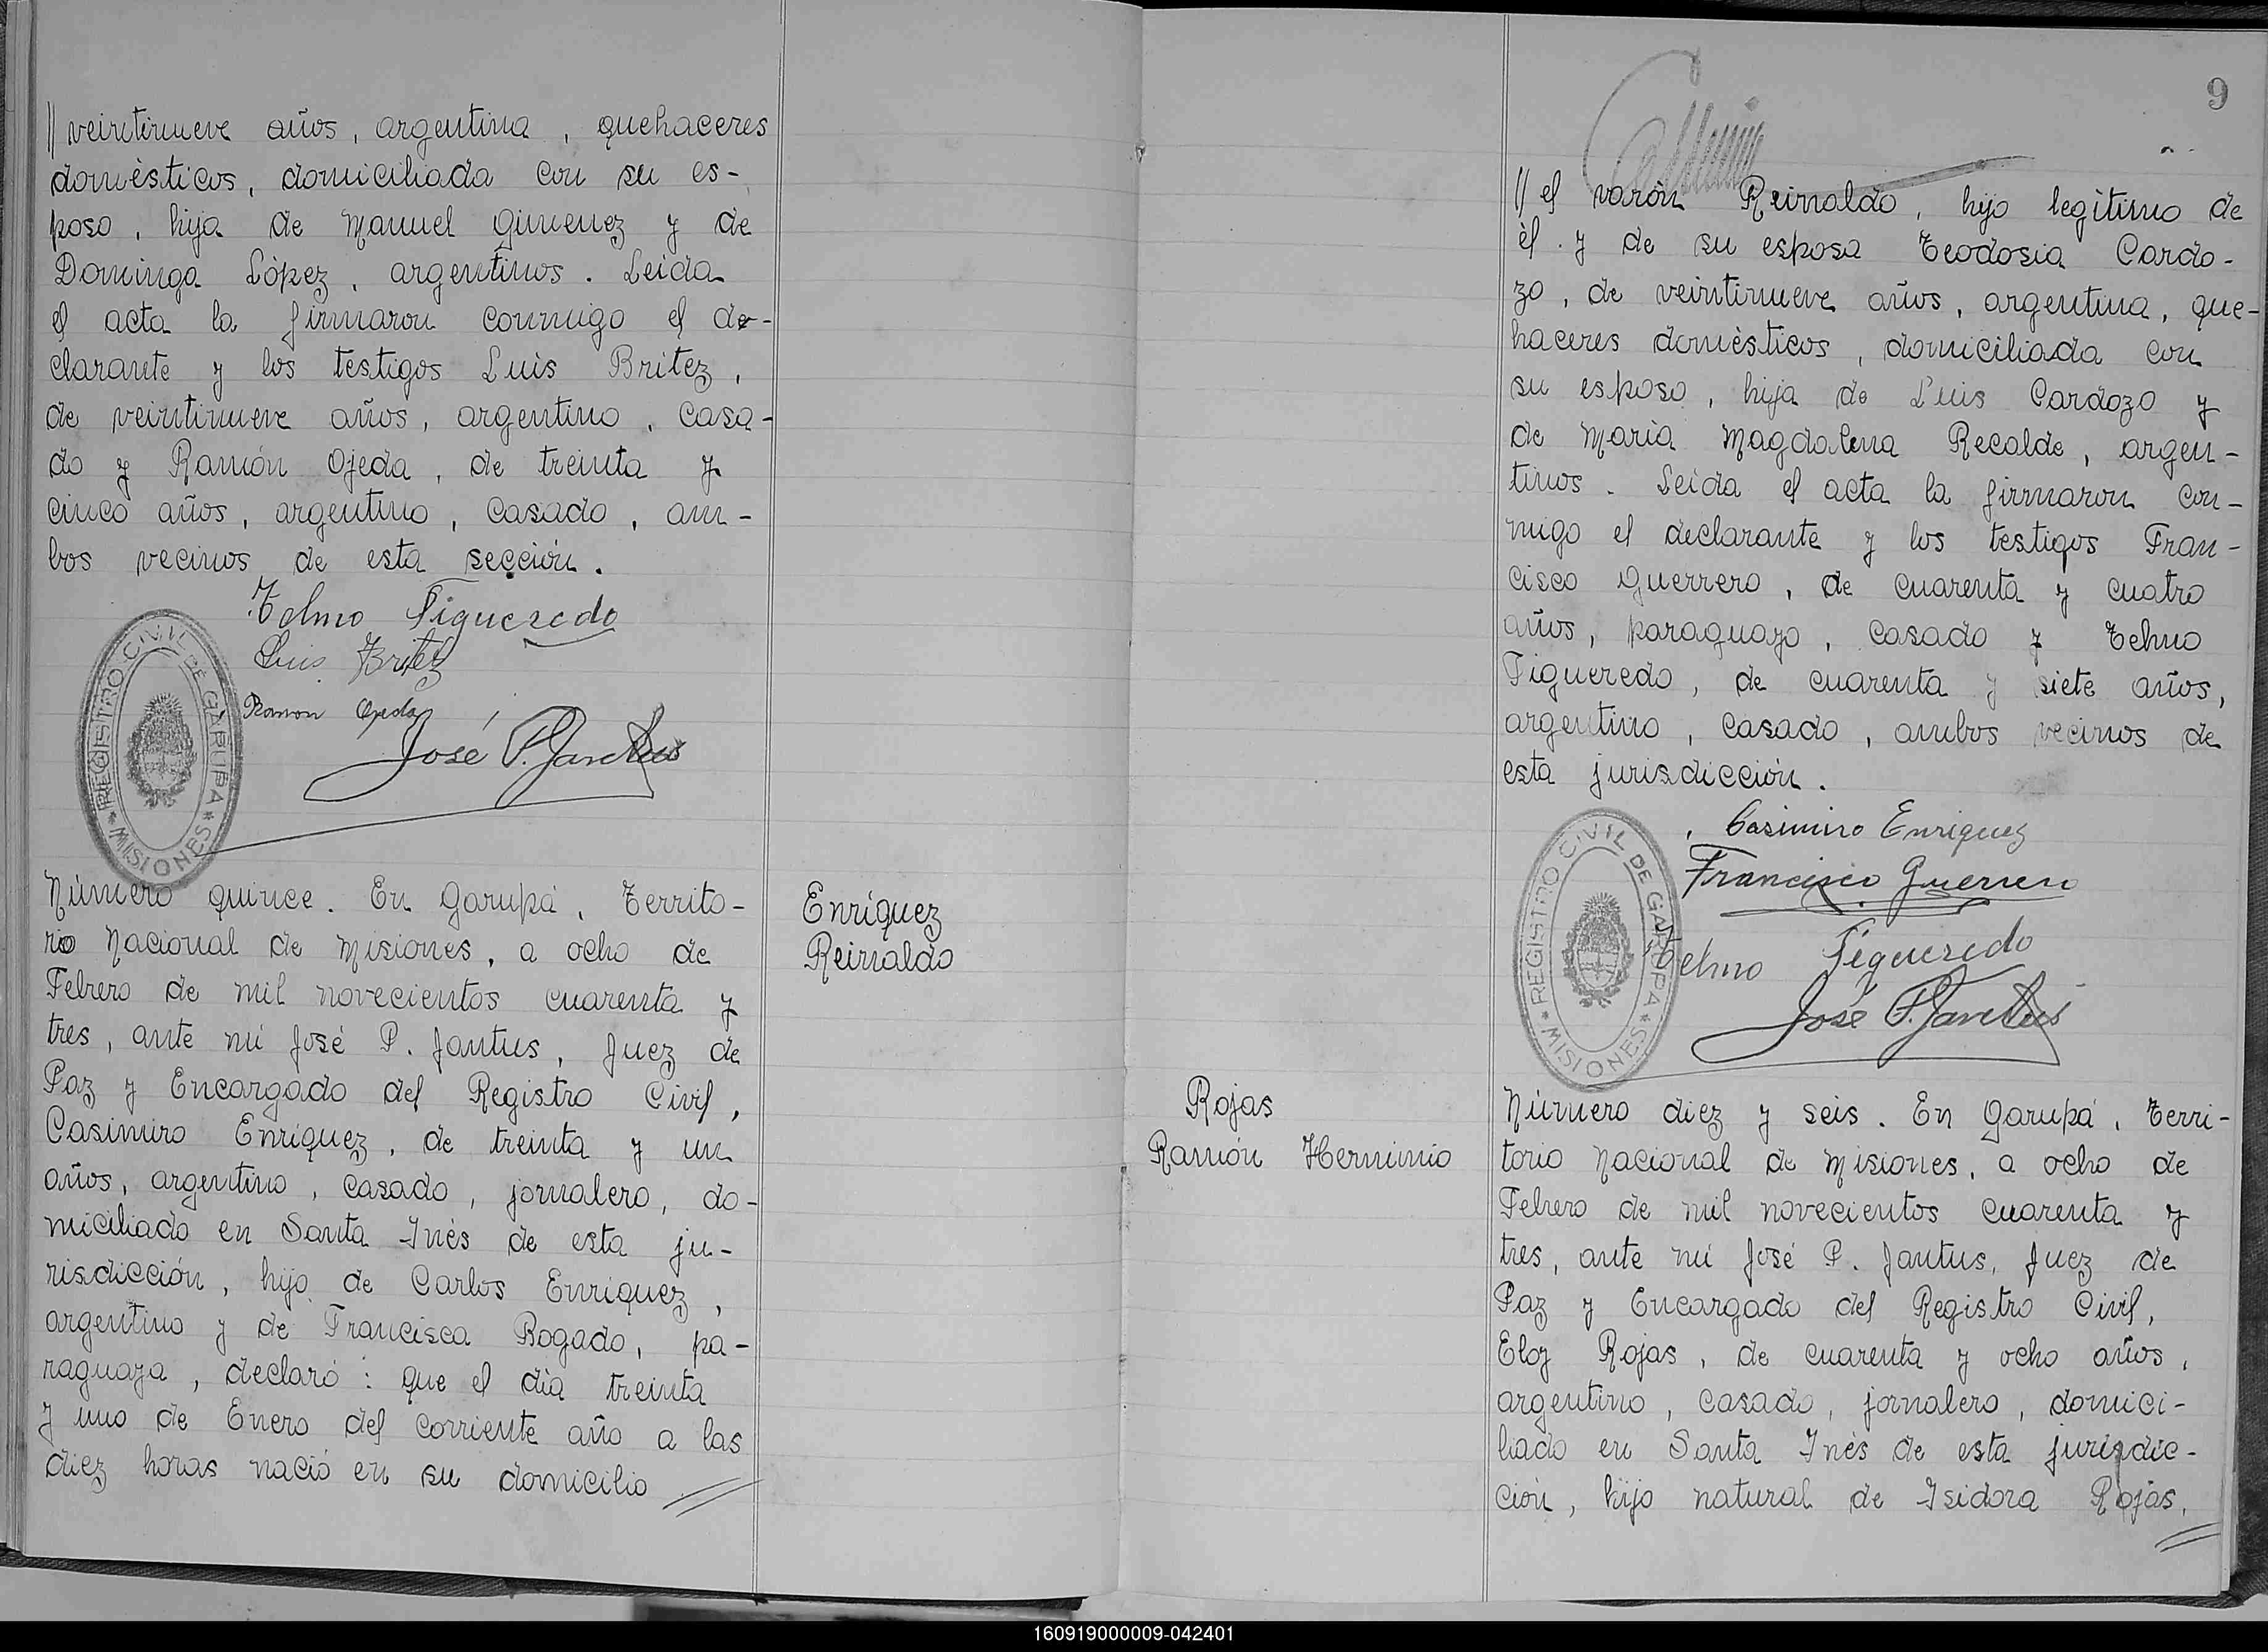 // veintinueve años, argentina, quehaceres
domésticos, domiciliada con su es-
poso, hija de Manuel Gimenez y de
Dominga López, argentinos. Leída
el acta la firmaron conmigo el de-
clarante y los testigos Luis Britez,
de veintinueve años, argentino, casa-
do y Ramón Ojeda, de treinta y
cinco años, argentino, casado, am-
bos vecinos de esta sección.
Telmo Figueredo
Luis Britez
Ramon Ojeda
José P. Jantus
REGISTRO CIVIL DE GARUPA * MISIONES *
Número quince. En Garupá, Territo-
rio Nacional de Misiones, a ocho de
Febrero de mil novecientos cuarenta y
tres, ante mí José P. Jantus, Juez de
Paz y Encargado del Registro Civil,
Casimiro Enríquez, de treinta y un
años, argentino, casado, jornalero, do-
miciliado en Santa Inés de esta ju-
risdicción, hijo de Carlos Enríquez,
argentino y de Francisca Bogado, pa-
raguaya, declaró: que el día treinta
y uno de Enero del corriente año a las
diez horas nació en su domicilio //
Enríquez
Reinaldo
9
// el varón Reinaldo, hijo legítimo de
él y de su esposa Teodosia Cardo-
zo, de veintinueve años, argentina, que-
haceres domésticos, domiciliada con
su esposo, hija de Luis Cardozo y
de María Magdalena Recalde, argen-
tinos. Leída el acta la firmaron con-
migo el declarante y los testigos Fran-
cisco Guerrero, de cuarenta y cuatro
años, paraguayo, casado y Telmo
Figueredo, de cuarenta y siete años,
argentino, casado, ambos vecinos de
esta jurisdicción.
Casimiro Enriquez
Francisco Guerrero
Telmo Figueredo
José P. Jantus
REGISTRO CIVIL DE GARUPA * MISIONES *
Rojas
Ramón Herminio
Número diez y seis. En Garupá, Terri-
torio Nacional de Misiones, a ocho de
Febrero de mil novecientos cuarenta y
tres, ante mí José P. Jantus, Juez de
Paz y Encargado del Registro Civil,
Eloy Rojas, de cuarenta y ocho años,
argentino, casado, jornalero, domici-
liado en Santa Inés de esta jurisdic-
ción, hijo natural de Isidora Rojas, //
160919000009-042401